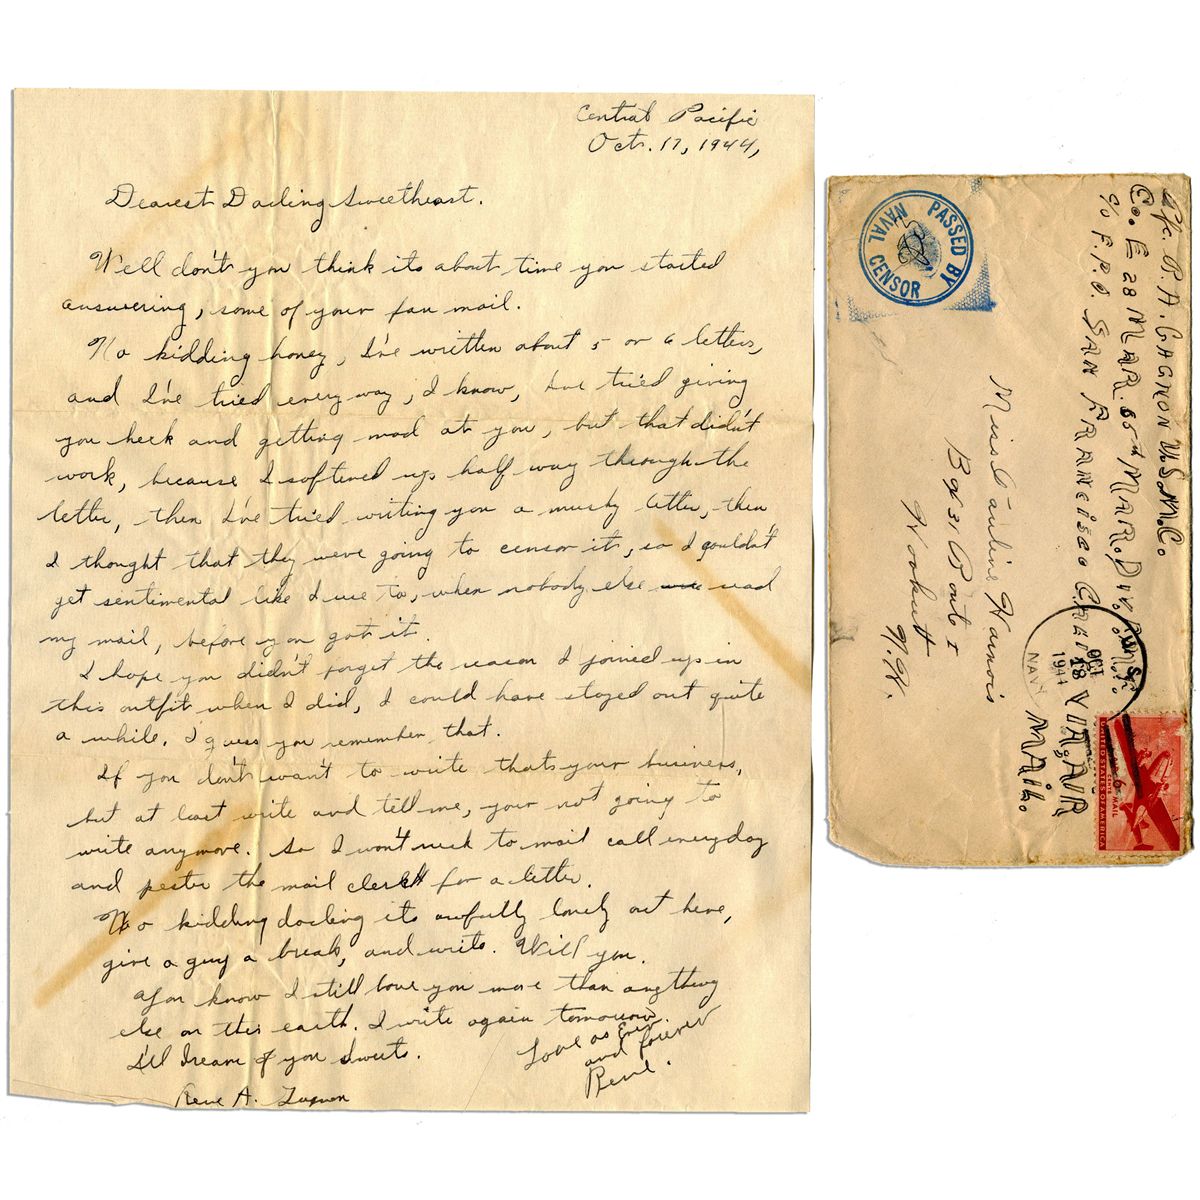 Central Pacific
Oct. 17, 1944,
Dearest Darling Sweetheart.
Well don't you think its about time you started
answering, some of your fan mail.
No kidding honey, I've written about 5 or 6 letters,
and I've tried every way, I know, I've tried giving
you heck and getting mad at you, but that didn't
work, because I softened up half way through the
letter, then I've tried writing you a mushy letter, then
I thought that they were going to censor it, so I couldn't
get sentimental like I use to, when nobody else read
my mail, before you got it.
I hope you didn't forget the reason I joined up in
this outfit when I did, I could have stayed out quite
a while, I guess you remember that.
If you don't want to write thats your business,
but at least write and tell me, your not going to
write anymore. So I won't rush to mail call everyday
and pester the mail clerk for a letter.
No kidding darling its awfully lonely out here,
give a guy a break, and write. Will you.
You know I still love you more than anything
else on this earth. I write again tomorrow.
I'll dream of you Sweets.
Love as Ever
and forever
Rene.
Rene A. Gagnon
PASSED BY
NAVAL CENSOR
Pfc. R. A. GAGNON U.S.M.C.
Co. E 28 MAR. 5th MAR. DIV.
c/o F.P.O. SAN FRANCISCO CALIF.
VIA AIR
MAIL.
Miss Pauline Harnois
Box 31 Route 1
Hooksett
N.H.
U.S.
OCT
18
1944
NAVY
UNITED STATES OF AMERICA
6 CENTS
AIR MAIL